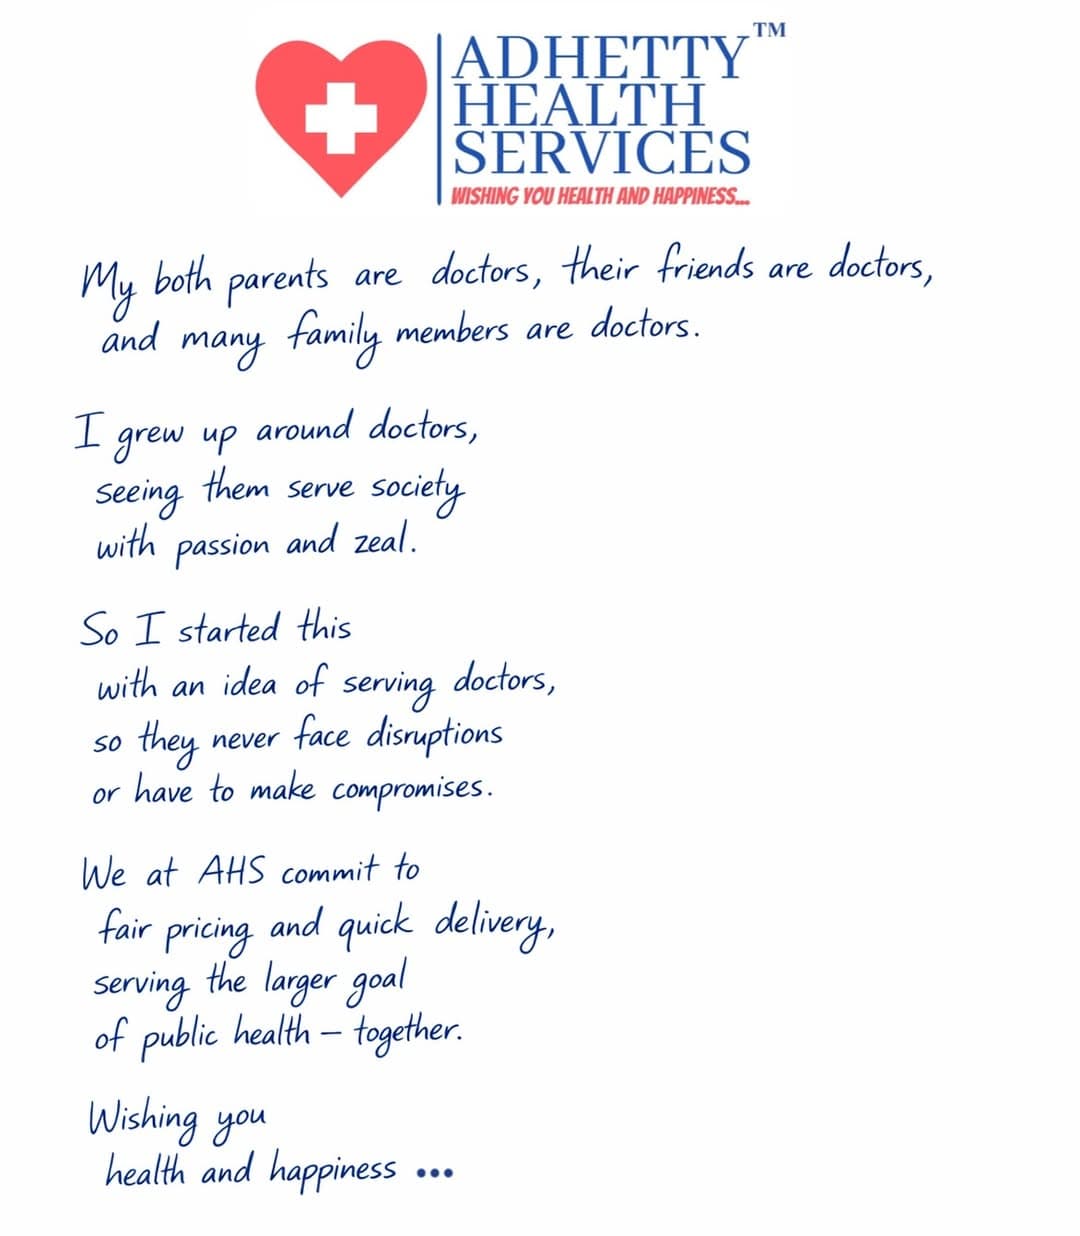 ADHETTY™
HEALTH
SERVICES
WISHING YOU HEALTH AND HAPPINESS...
My both parents are doctors, their friends are doctors,
and many family members are doctors.
I grew up around doctors,
seeing them serve society
with passion and zeal.
So I started this
with an idea of serving doctors,
so they never face disruptions
or have to make compromises.
We at AHS commit to
fair pricing and quick delivery,
serving the larger goal
of public health – together.
Wishing you
health and happiness •••